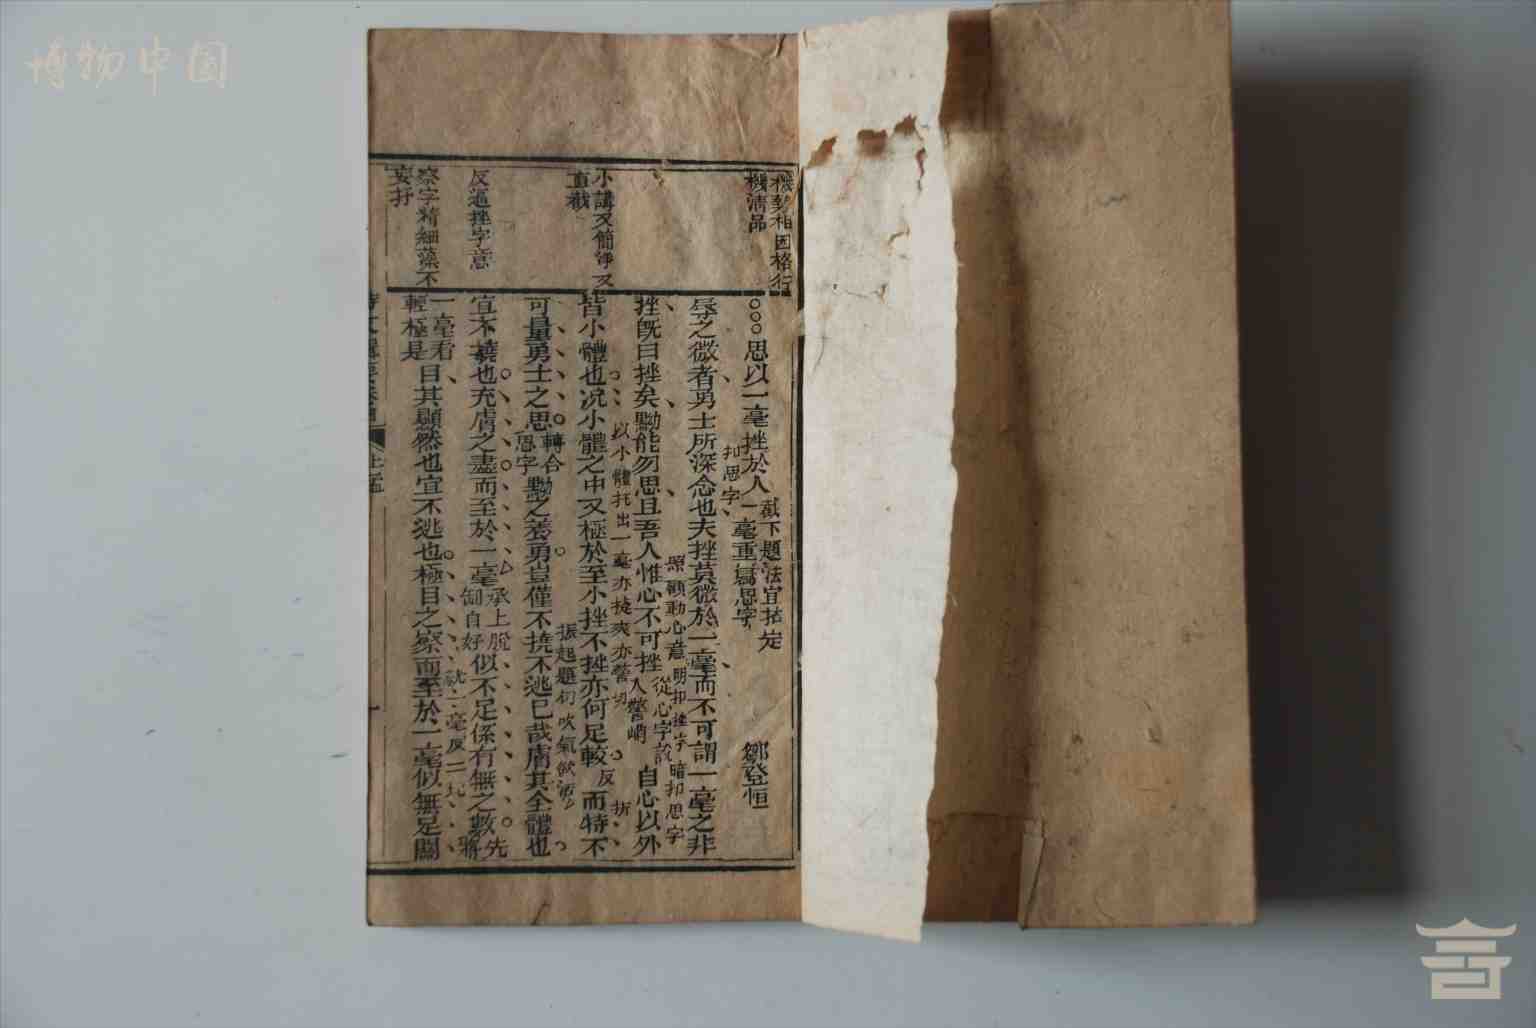 博物中国
機清品
小講又簡淨又
直截
反逼挫字意
察字精細藻不
安抒
思以一毫挫於人
截下題法宜拈定
一毫重寫思字
鄒登恒
辱之微者勇士所深念也夫挫莫微於一毫而不可謂一毫之非
扣思字
照顧動心意明扣挫字暗扣思字
挫旣曰挫矣黝能勿思且吾人惟心不可挫
從心字說
入警峭
自心以外
以小體托出一毫亦捷爽亦警切
皆小體也况小體之中又極於至小挫不挫亦何足較
反
折
而特不
可量勇士之思
轉合
思字
黝之養勇豈僅不撓不逃已哉膚其全體也
宜不撓也充膚之盡而至於一毫
承上脫
卸自好
似不足係有無之數
先
將
一毫看
輕極是
目其顯然也宜不逃也極目之察而至於一毫似無足關
上孟